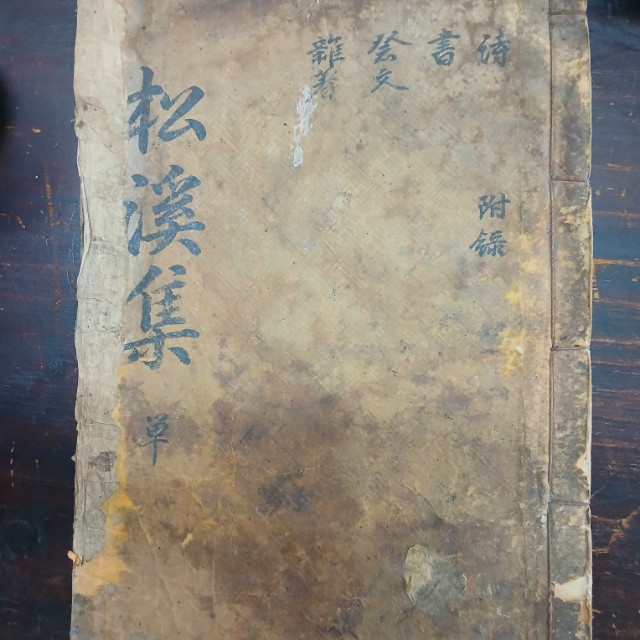 詩
附錄
書
祭文
雜著
松溪集 單